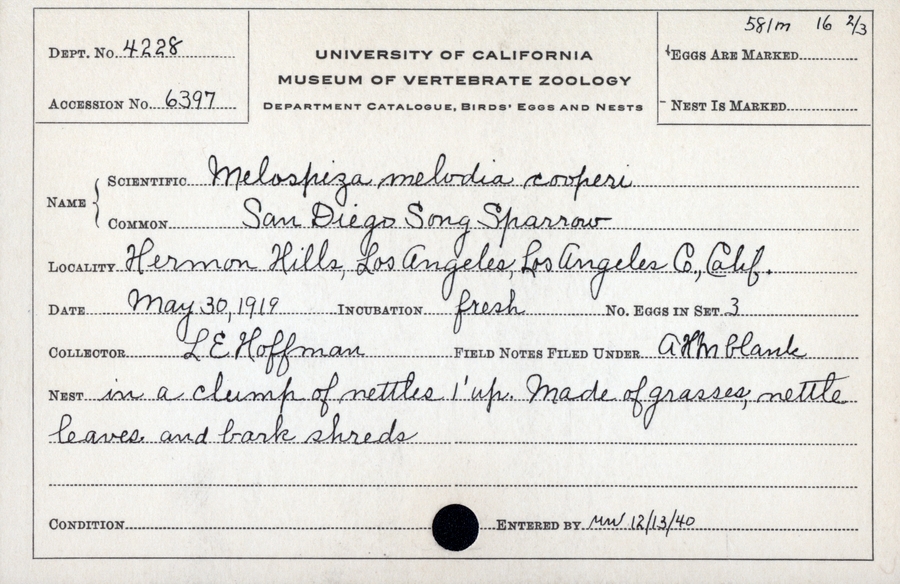 581m 16 2/3
DEPT. No. 4228
UNIVERSITY OF CALIFORNIA
EGGS ARE MARKED
MUSEUM OF VERTEBRATE ZOOLOGY
ACCESSION No. 6397
DEPARTMENT CATALOGUE, BIRDS' EGGS AND NESTS
NEST IS MARKED
NAME
SCIENTIFIC Melospiza melodia cooperi
COMMON San Diego Song Sparrow
LOCALITY Hermon Hills, Los Angeles, Los Angeles Co., Calif.
DATE May 30, 1919 INCUBATION fresh No. EGGS IN SET 3
COLLECTOR L E Hoffman FIELD NOTES FILED UNDER
NEST in a clump of nettles 1' up. Made of grasses, nettle
leaves and bark shreds
CONDITION ENTERED BY 12/13/40